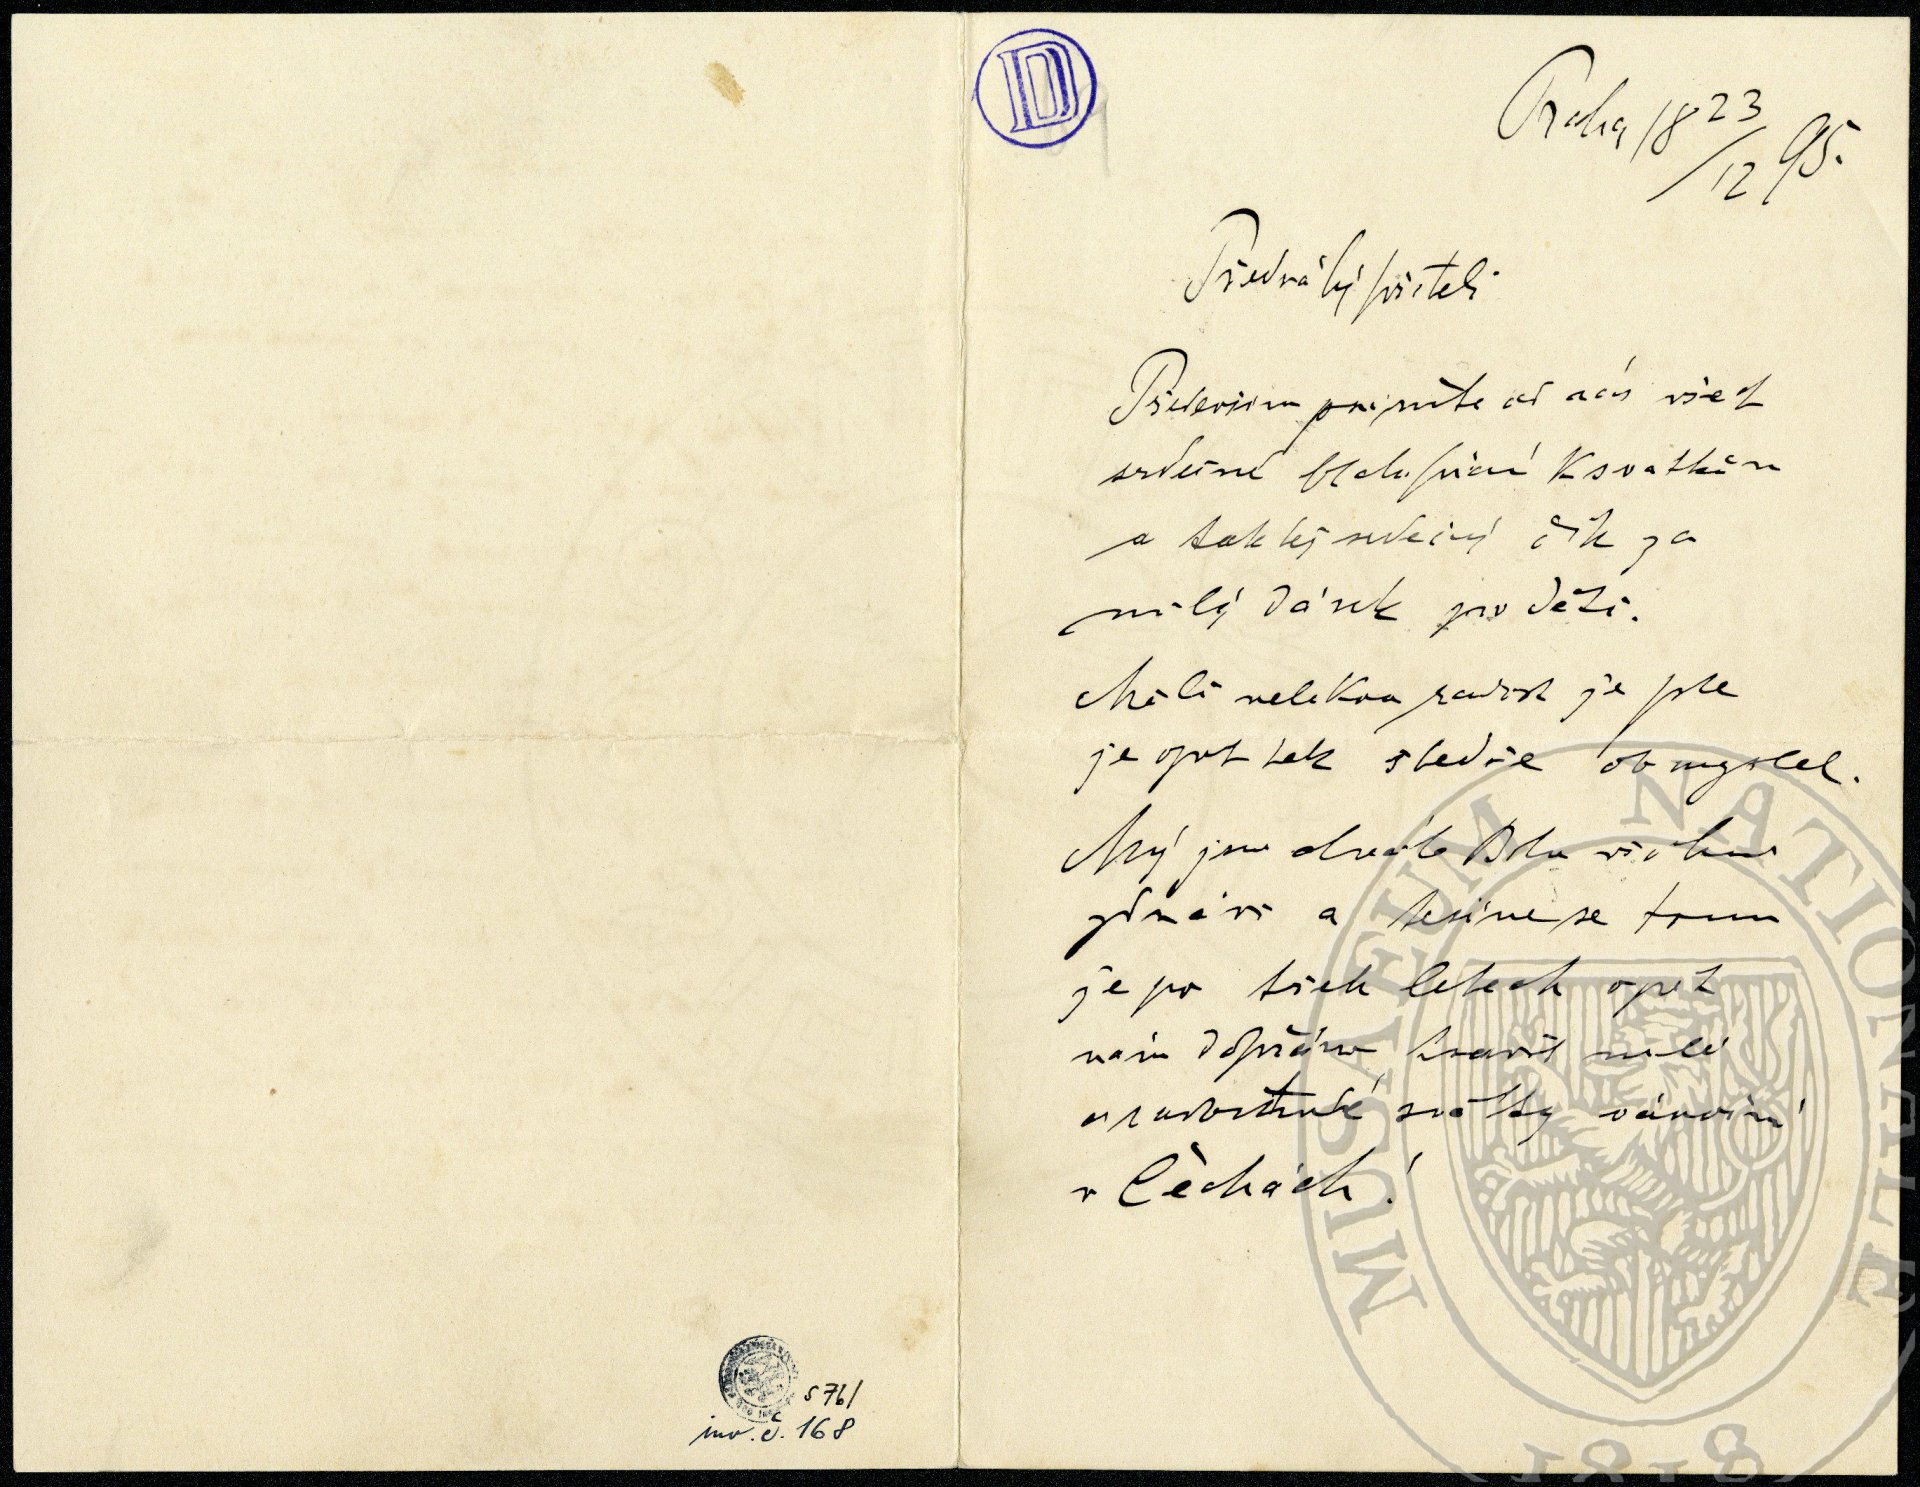 D
Praha 18 23/12 95.
Předrahý příteli
Předevsim prijměte od nás všech
srdečné blahopřání K svátkům
a taktéž srdečný dík za
milý dárek pro děti.
Měli velikou radost že jste
je opět tak štedře obmyslel.
Mý jsme chvála Bohu všichni
zdrávi a tesíme se tomu
že po třech letech opet
nám dopřáno travit milé
a radostné svátky vánoční
v Čechách!
S 76/
inv. č. 168
MUSAEUM NATIONALE
1818